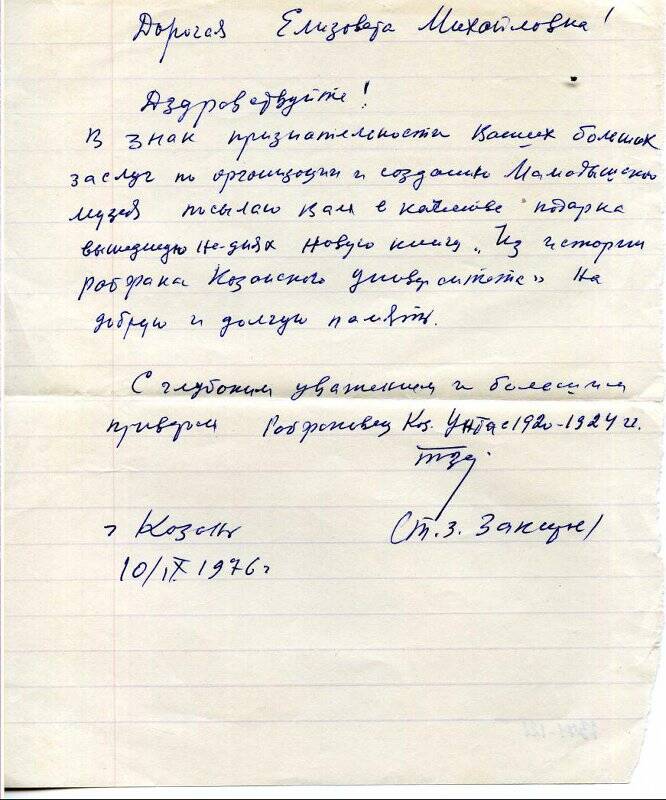 Дорогая Елизавета Михайловна!
Здравствуйте!
В знак признательности Ваших больших
заслуг по организации и созданию Мамадышского
музея посылаю Вам в качестве подарка
вышедшую на-днях новую книгу „Из истории
рабфака Казанского университета» на
добрую и долгую память.
С глубоким уважением и большим
приветом Рабфаковец Каз. Ун-та с 1920-1924 гг.
(Т. З.
г Казань
10/IX 1976 г